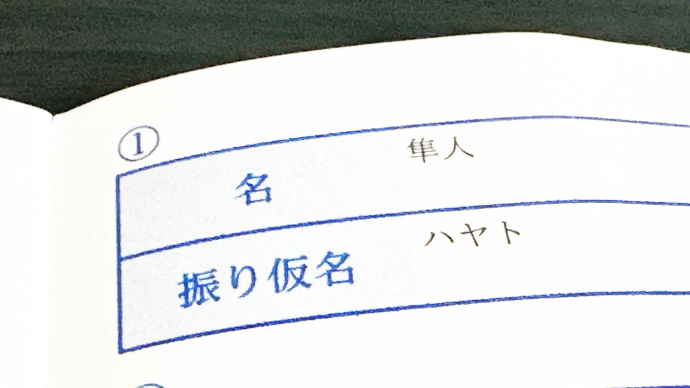 ①
名 隼人
振り仮名 ハヤト